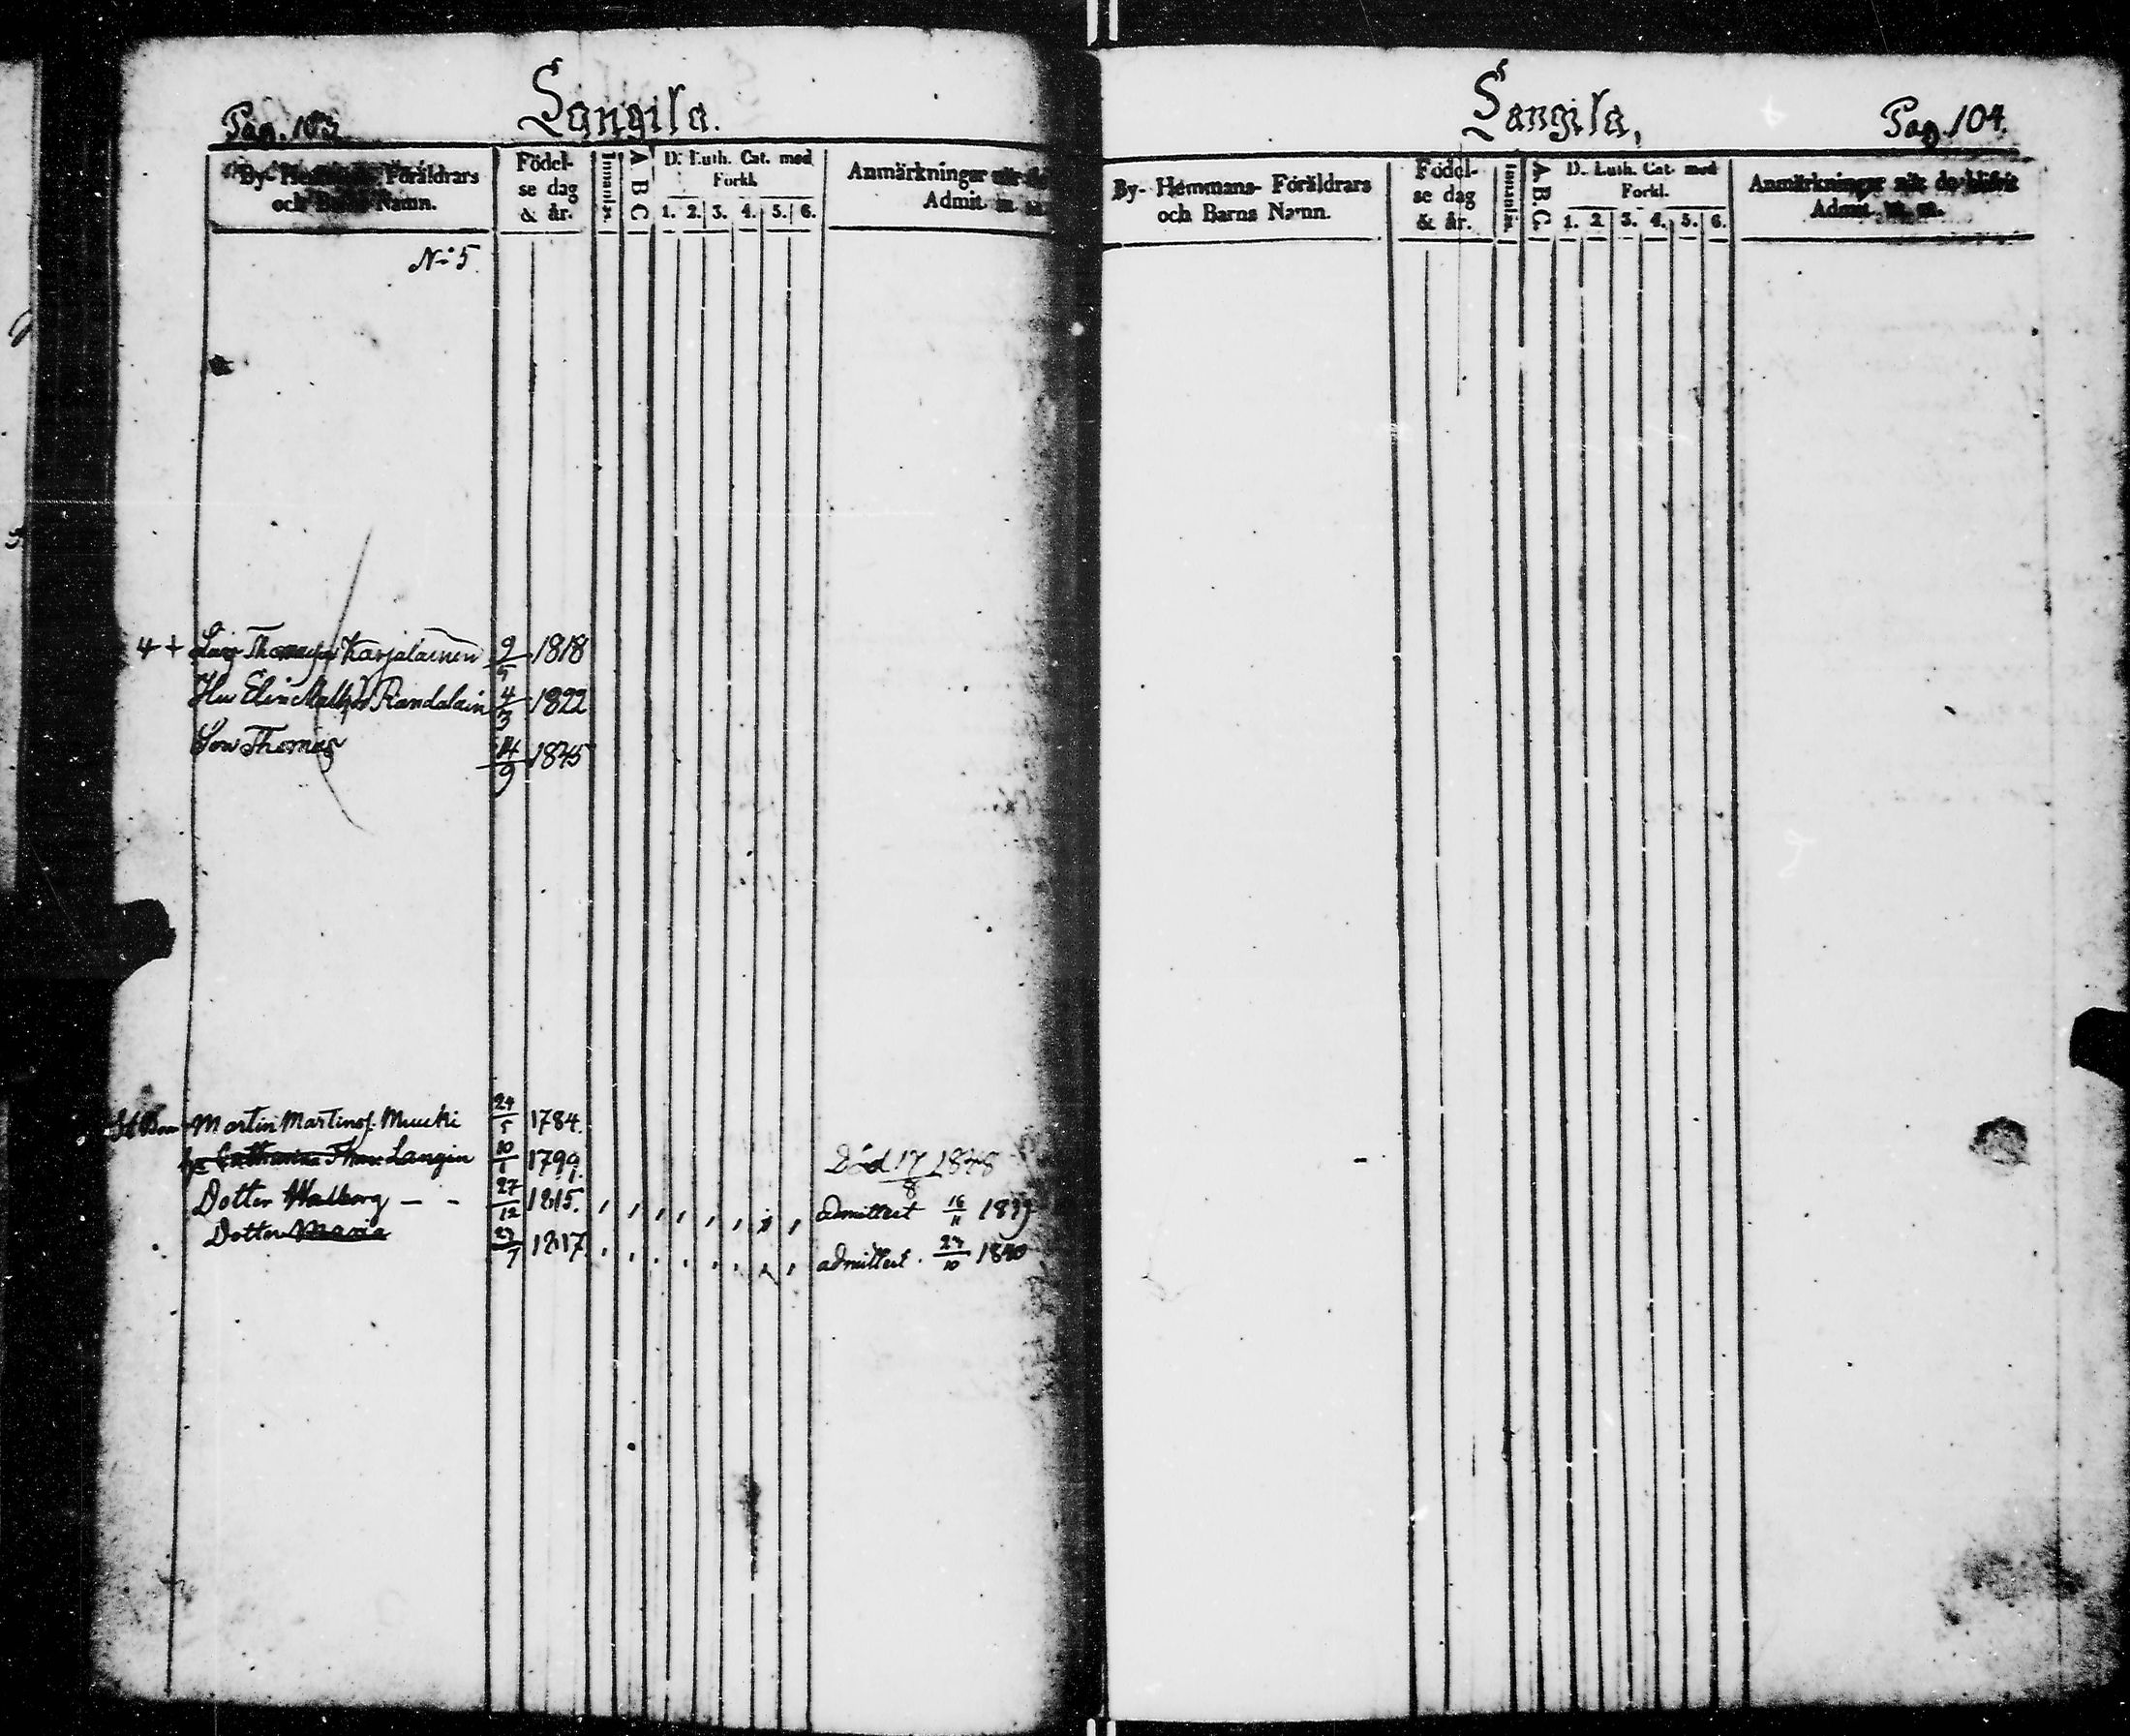 Pag. 103
Langila.
By- Hemmans- Föräldrars
och Barns Namn.
Födel-
se dag
& år.
Innanläs.
A B C
D. Luth. Cat. med
Forkl.
1. 2. 3. 4. 5. 6.
Anmärkningar när de
Admit. m. m.
N:o 5.
4 + Lars Thomasson Karjalainen 9/5 1818
Hu Elin Mattsd Randalain 4/3 1822
Son Thomas 14/9 1845
Martin Martinss. Muuki 24/5 1784.
Catharina Thom. Langin 10/1 1799. Död 17/8 1838
Dotter Walborg - - 27/12 1815. admittert 16/11 1839
Dotter Maria 23/7 1817 admittert. 24/10 1840
Langila,
Pag. 104.
By- Hemmans- Föräldrars
och Barns Namn.
Födel-
se dag
& år.
Innanläs.
A. B. C.
D. Luth. Cat. med
Forkl.
1. 2. 3. 4. 5. 6.
Anmärkningar när de blifvit
Admit. m. m.